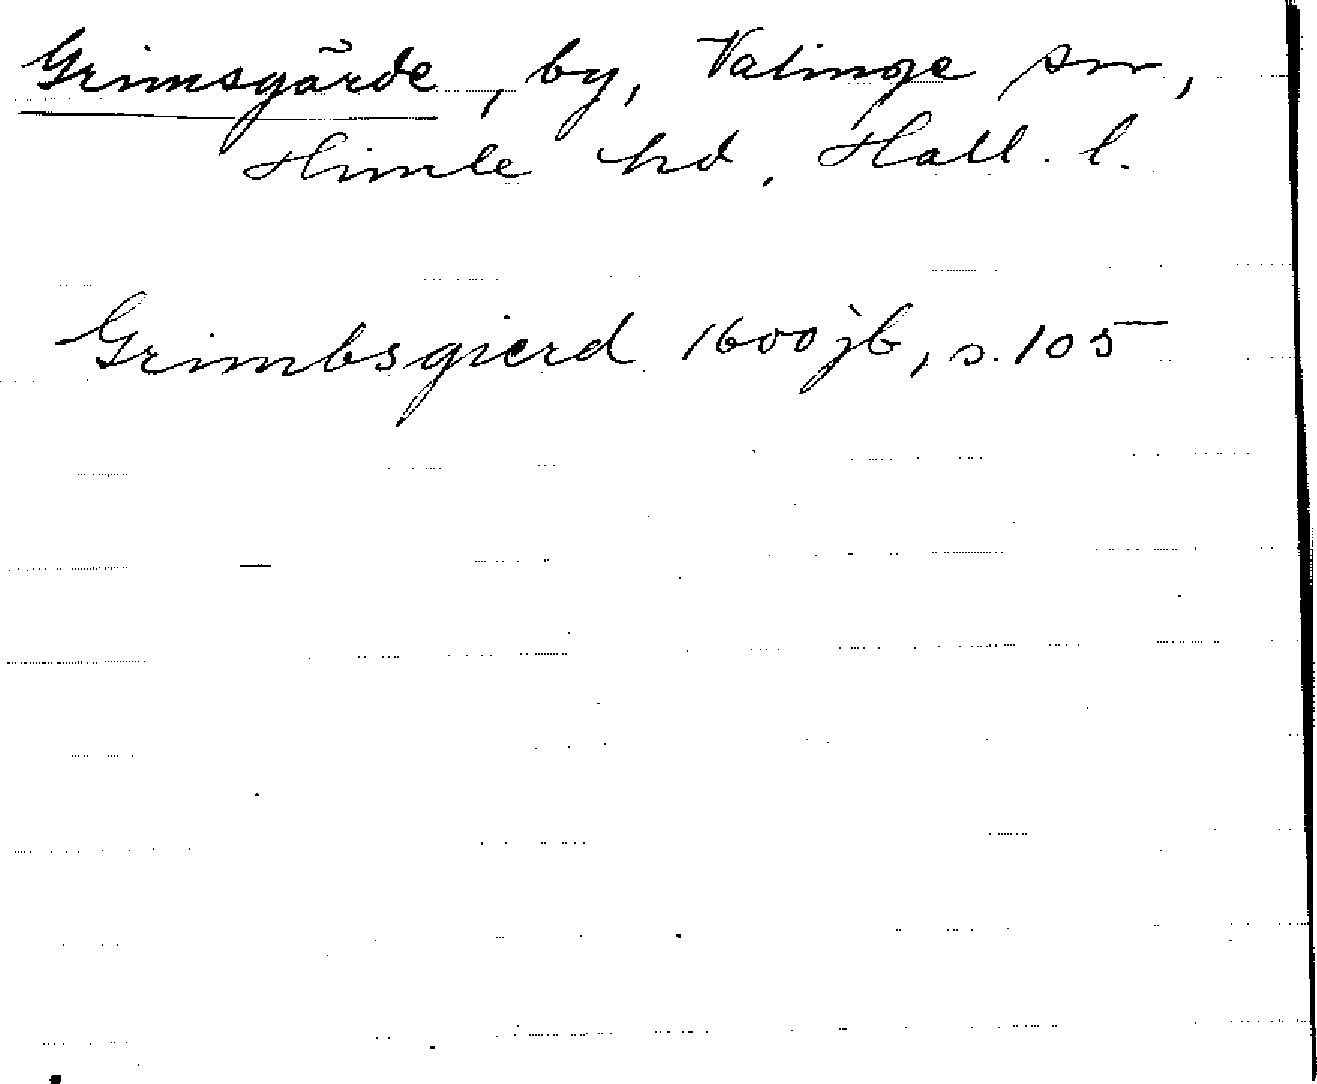 Grimsgärde, by, Valinge sn,
Himle hd, Hall. l.
Grimbsgierd 1600 jb, s. 105